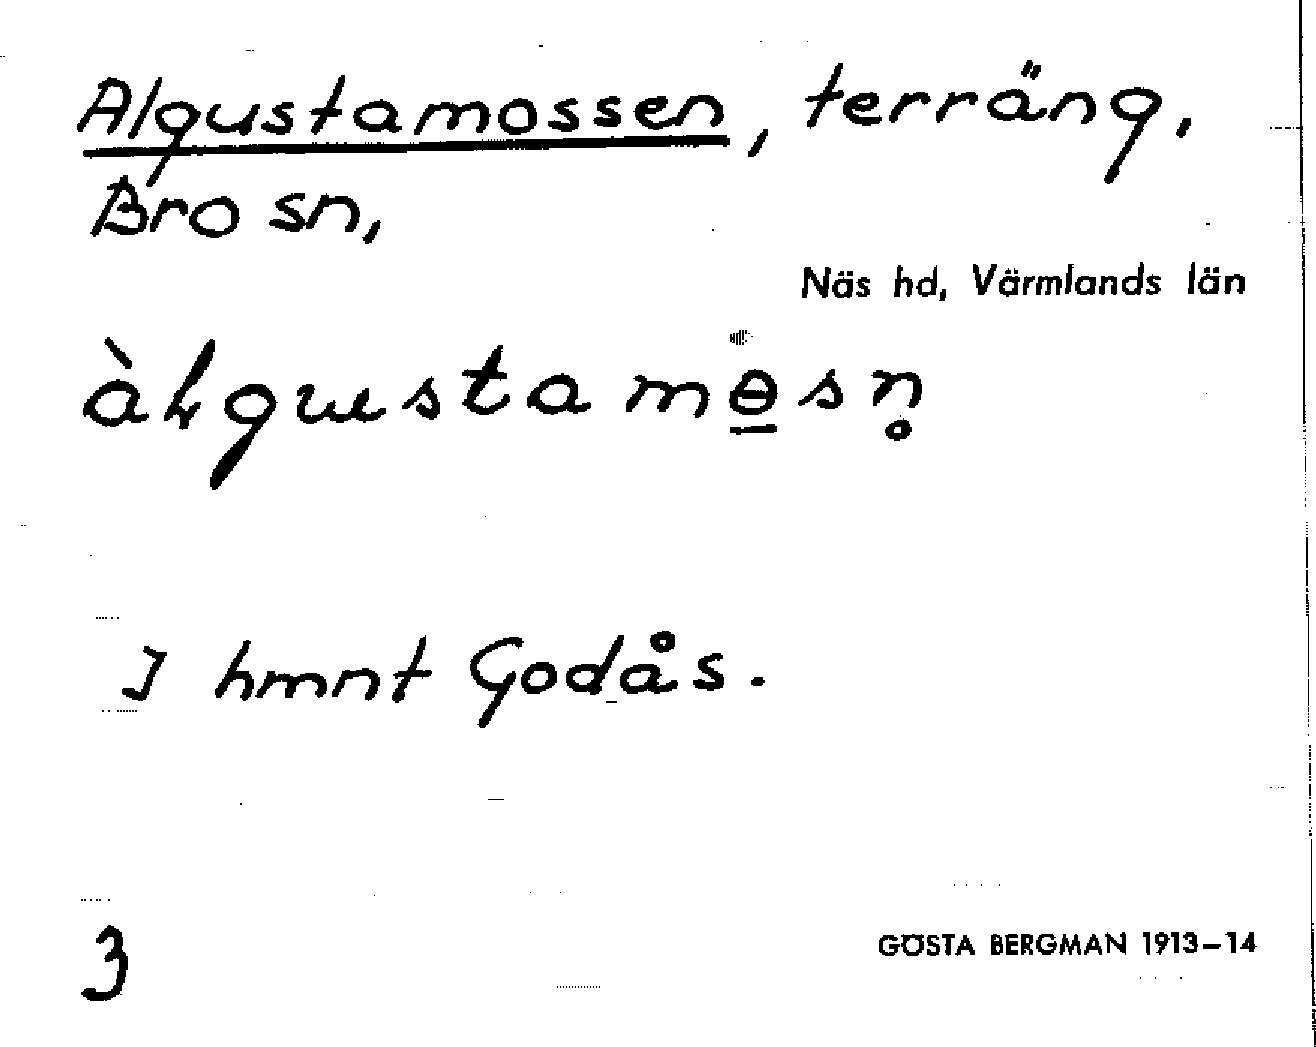 Algustamossen, terräng,
Bro sn,
Näs hd, Värmlands län
àɫgustamɵ̱sn̥
I hmnt Godås.
3
GÖSTA BERGMAN 1913–14